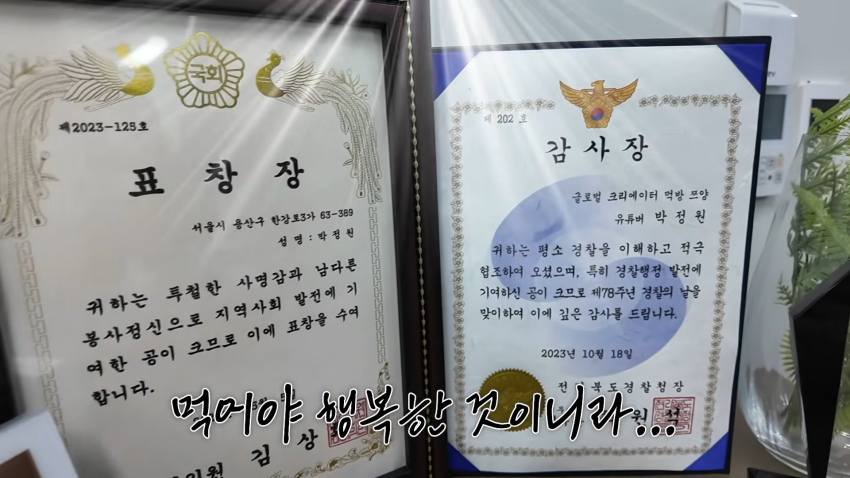 국회
제2023-125호
표창장
서울시 용산구 한강로3가 63-389
성명 : 박정원
귀하는 투철한 사명감과 남다른
봉사정신으로 지역사회 발전에 기
여한 공이 크므로 이에 표창을 수여
합니다.
김상
제 202 호
감사장
글로벌 크리에이터 먹방 쯔양
유튜버 박정원
귀하는 평소 경찰을 이해하고 적극
협조하여 오셨으며, 특히 경찰행정 발전에
기여하신 공이 크므로 제78주년 경찰의 날을
맞이하여 이에 깊은 감사를 드립니다.
2023년 10월 18일
전 북도경찰청장
원 석
먹어야 행복한 것이니라...